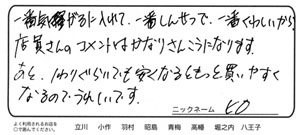 一番気軽に入れて、一番しんせつで、一番くわしいから
店員さんのコメントはかなりさんこうになります。
あと、1わりぐらいでも安くなるともっと買いやすく
なるのでうれしいです。
ニックネーム ヒロ
よく利用されるお店を
○で選んでください。
立川 小作 羽村 昭島 青梅 高幡 堀之内 八王子